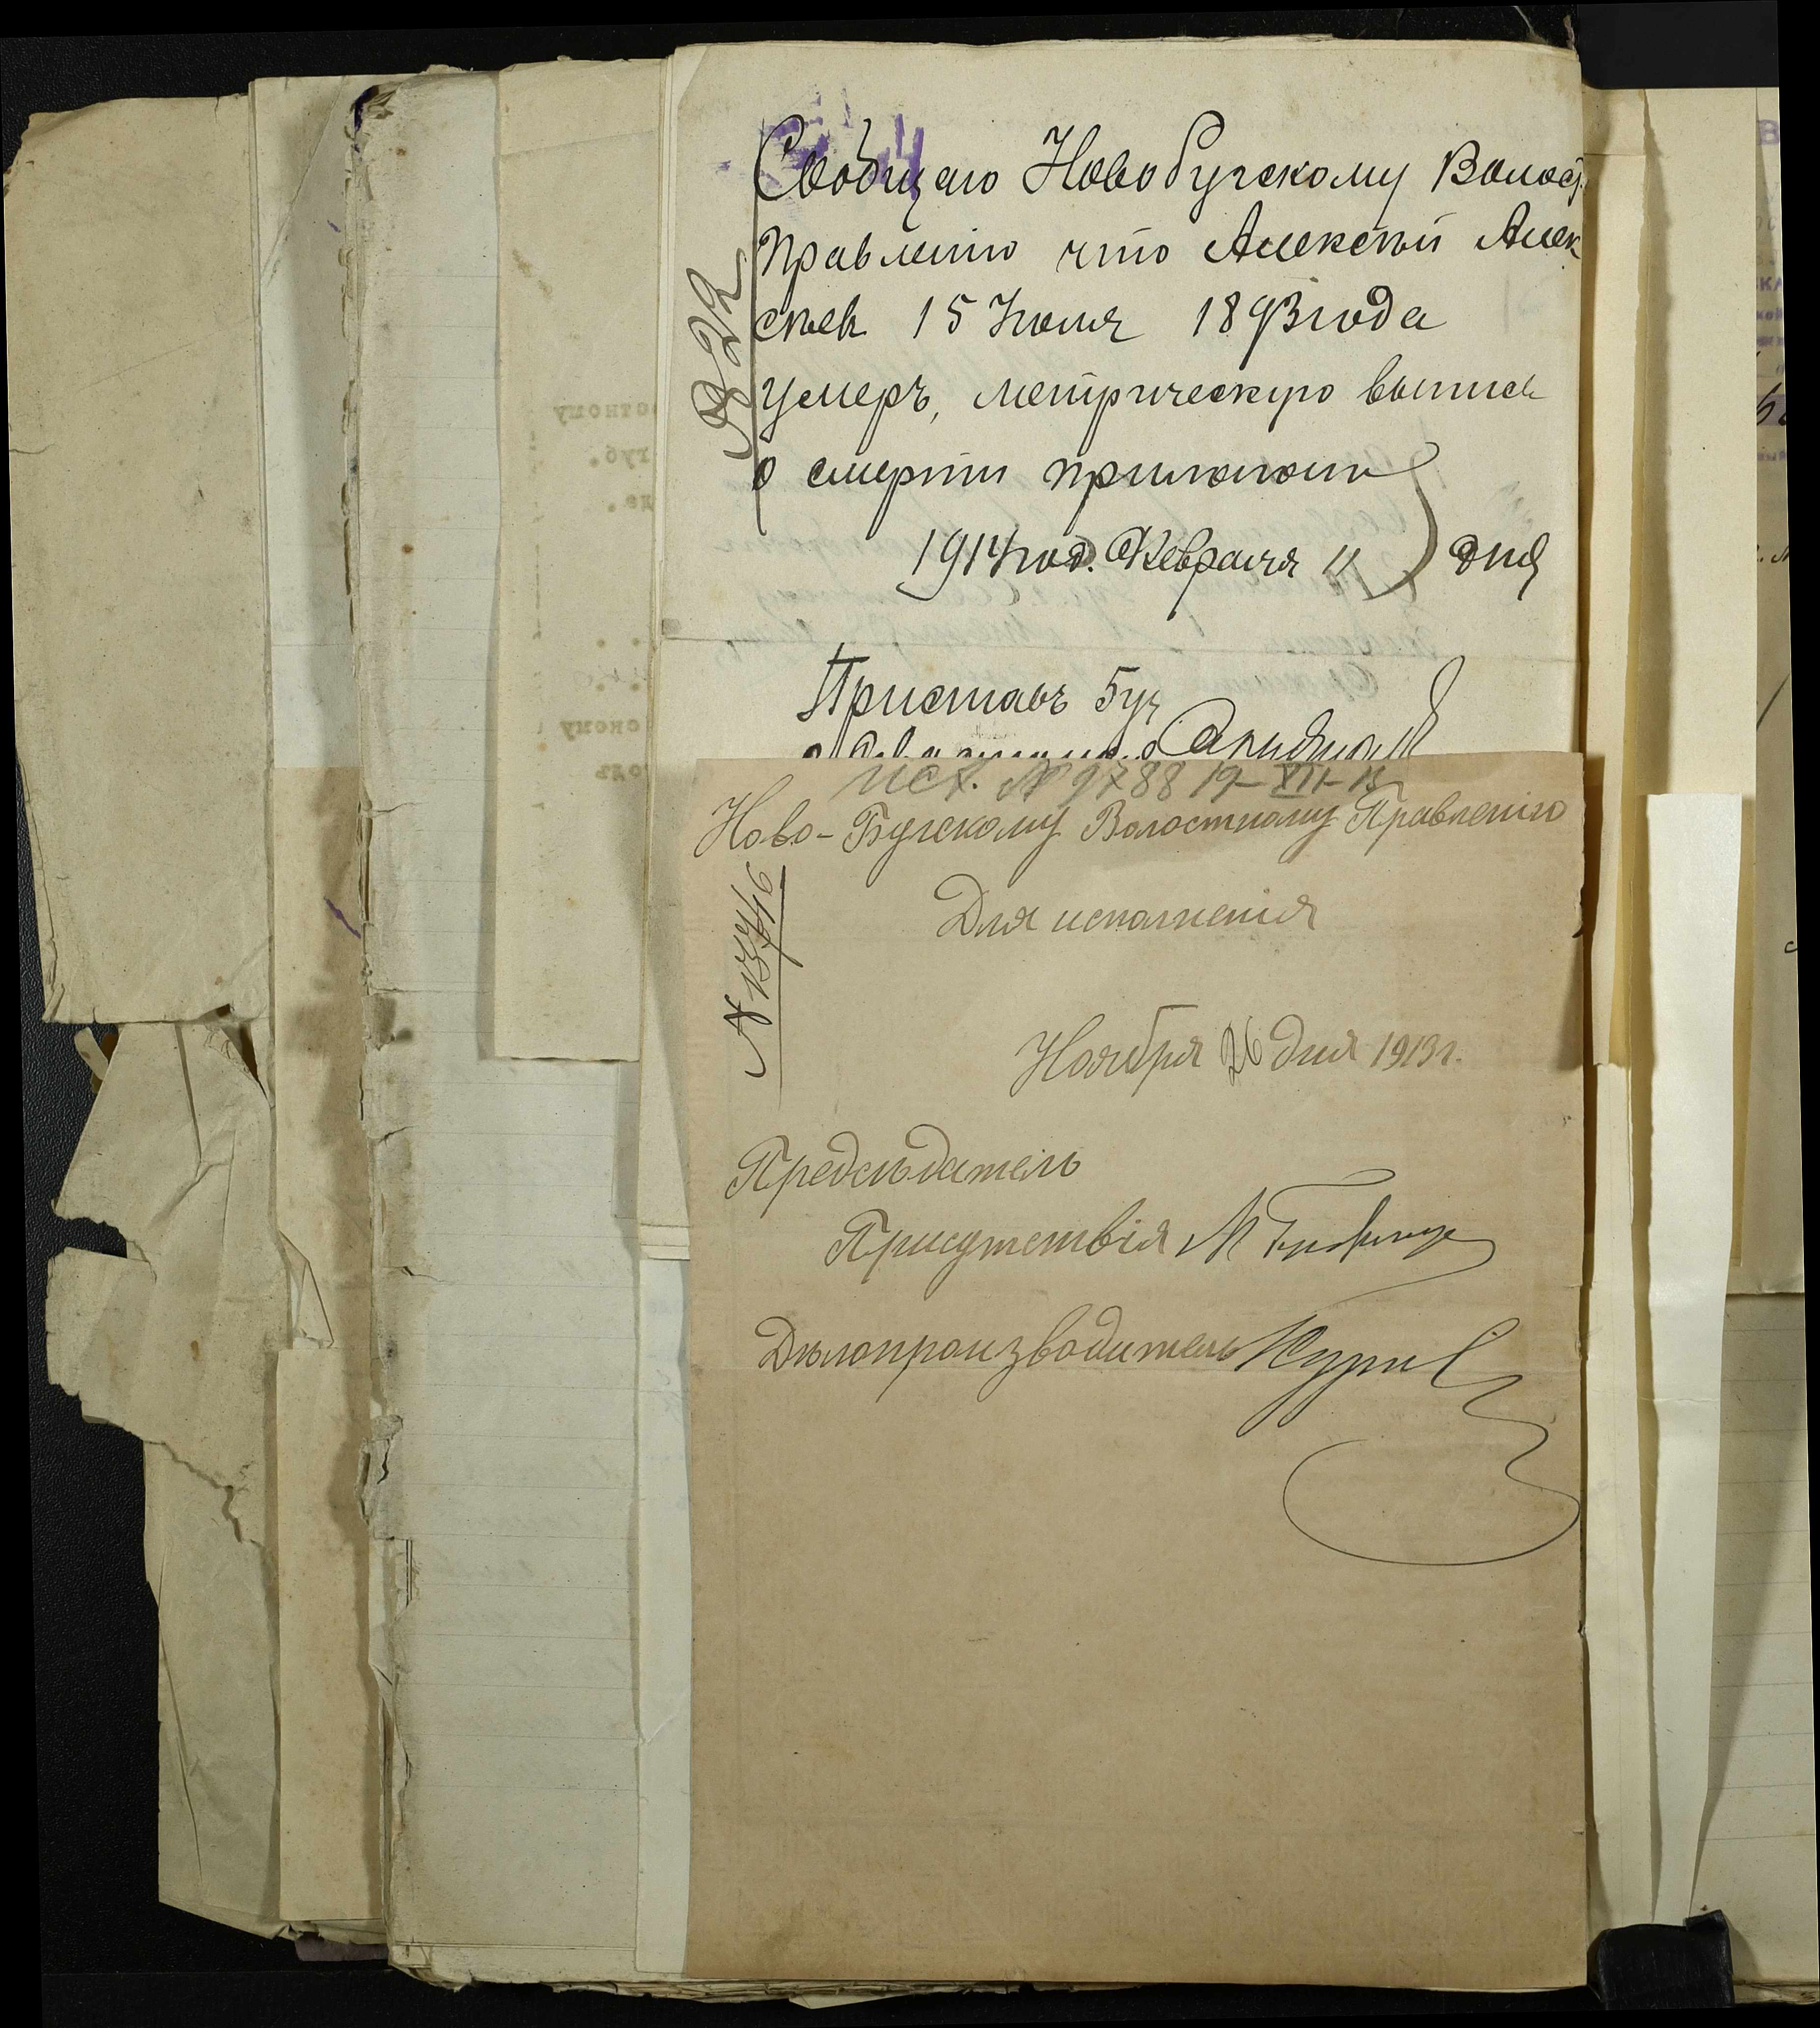 Сообщаю Новобугскому Волост.
Правленію что Алексѣй Алек
сѣев 15 Июля 1893 года
умеръ, метрическую выпись
о смерти прилогаю
1914 год. Февраля 11 дня
922
Приставъ Буг
исх. № 9788 19-XII-13
Ново-Бугскому Волостному Правленію
Для исполненія
№ 13746
Ноября 26 дня 1913 г.
Предсѣдатель
Присутствія М
Дѣлопроизводитель